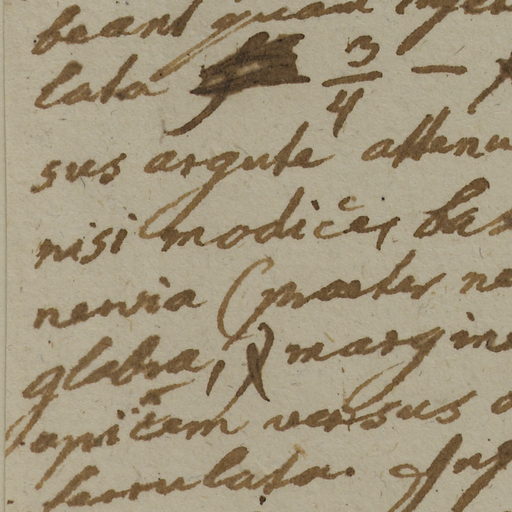 beant quam
lata 3/4 —
sus argute attenu
nisi modice, bas
nervia (praeter ne
glabra, margine
apicem versus
serrulata. Inf